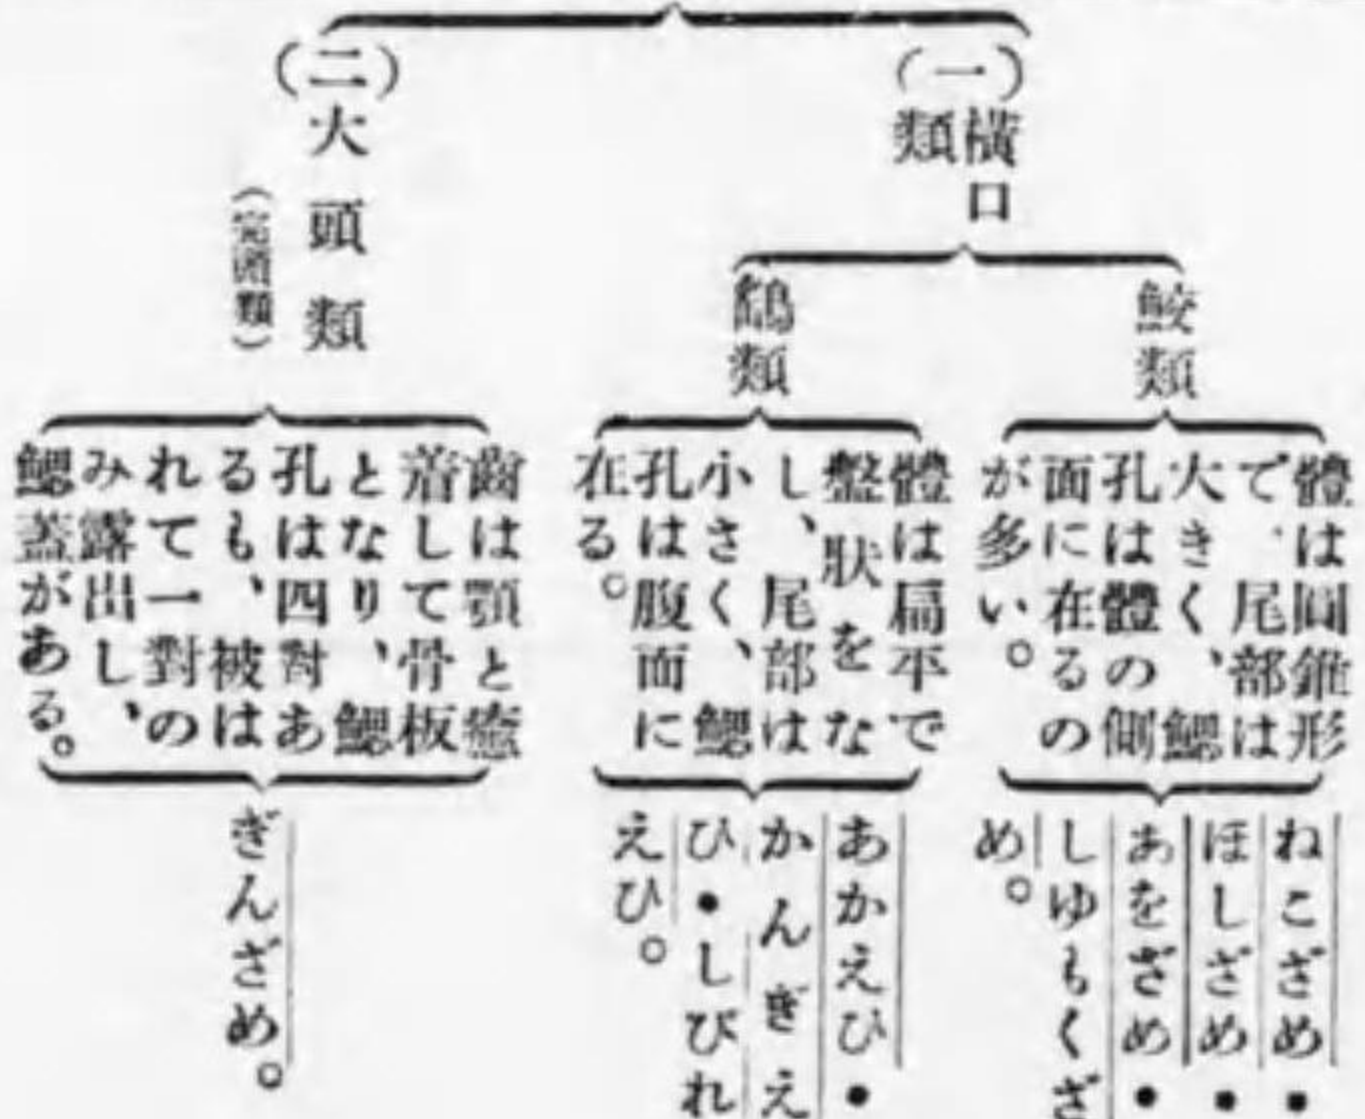 (一)橫口
類
鮫類
體は圓錐形
で、尾部は
大きく、鰓
孔は體の側
面に在るの
が多い。
ねこざめ・
ほしざめ・
あをざめ・
しゆもくざ
め。
類
體は扁平で
盤狀をな
し、尾部は
小さく、鰓
孔は腹面に
在る。
あかえひ・
かんぎえ
ひ・しびれ
えひ。
(二)大頭類
(完頭類)
齒は顎と癒
着して骨板
となり、鰓
孔は四對あ
るも、被は
れて一對の
み露出し、
鰓蓋がある。
ぎんざめ。